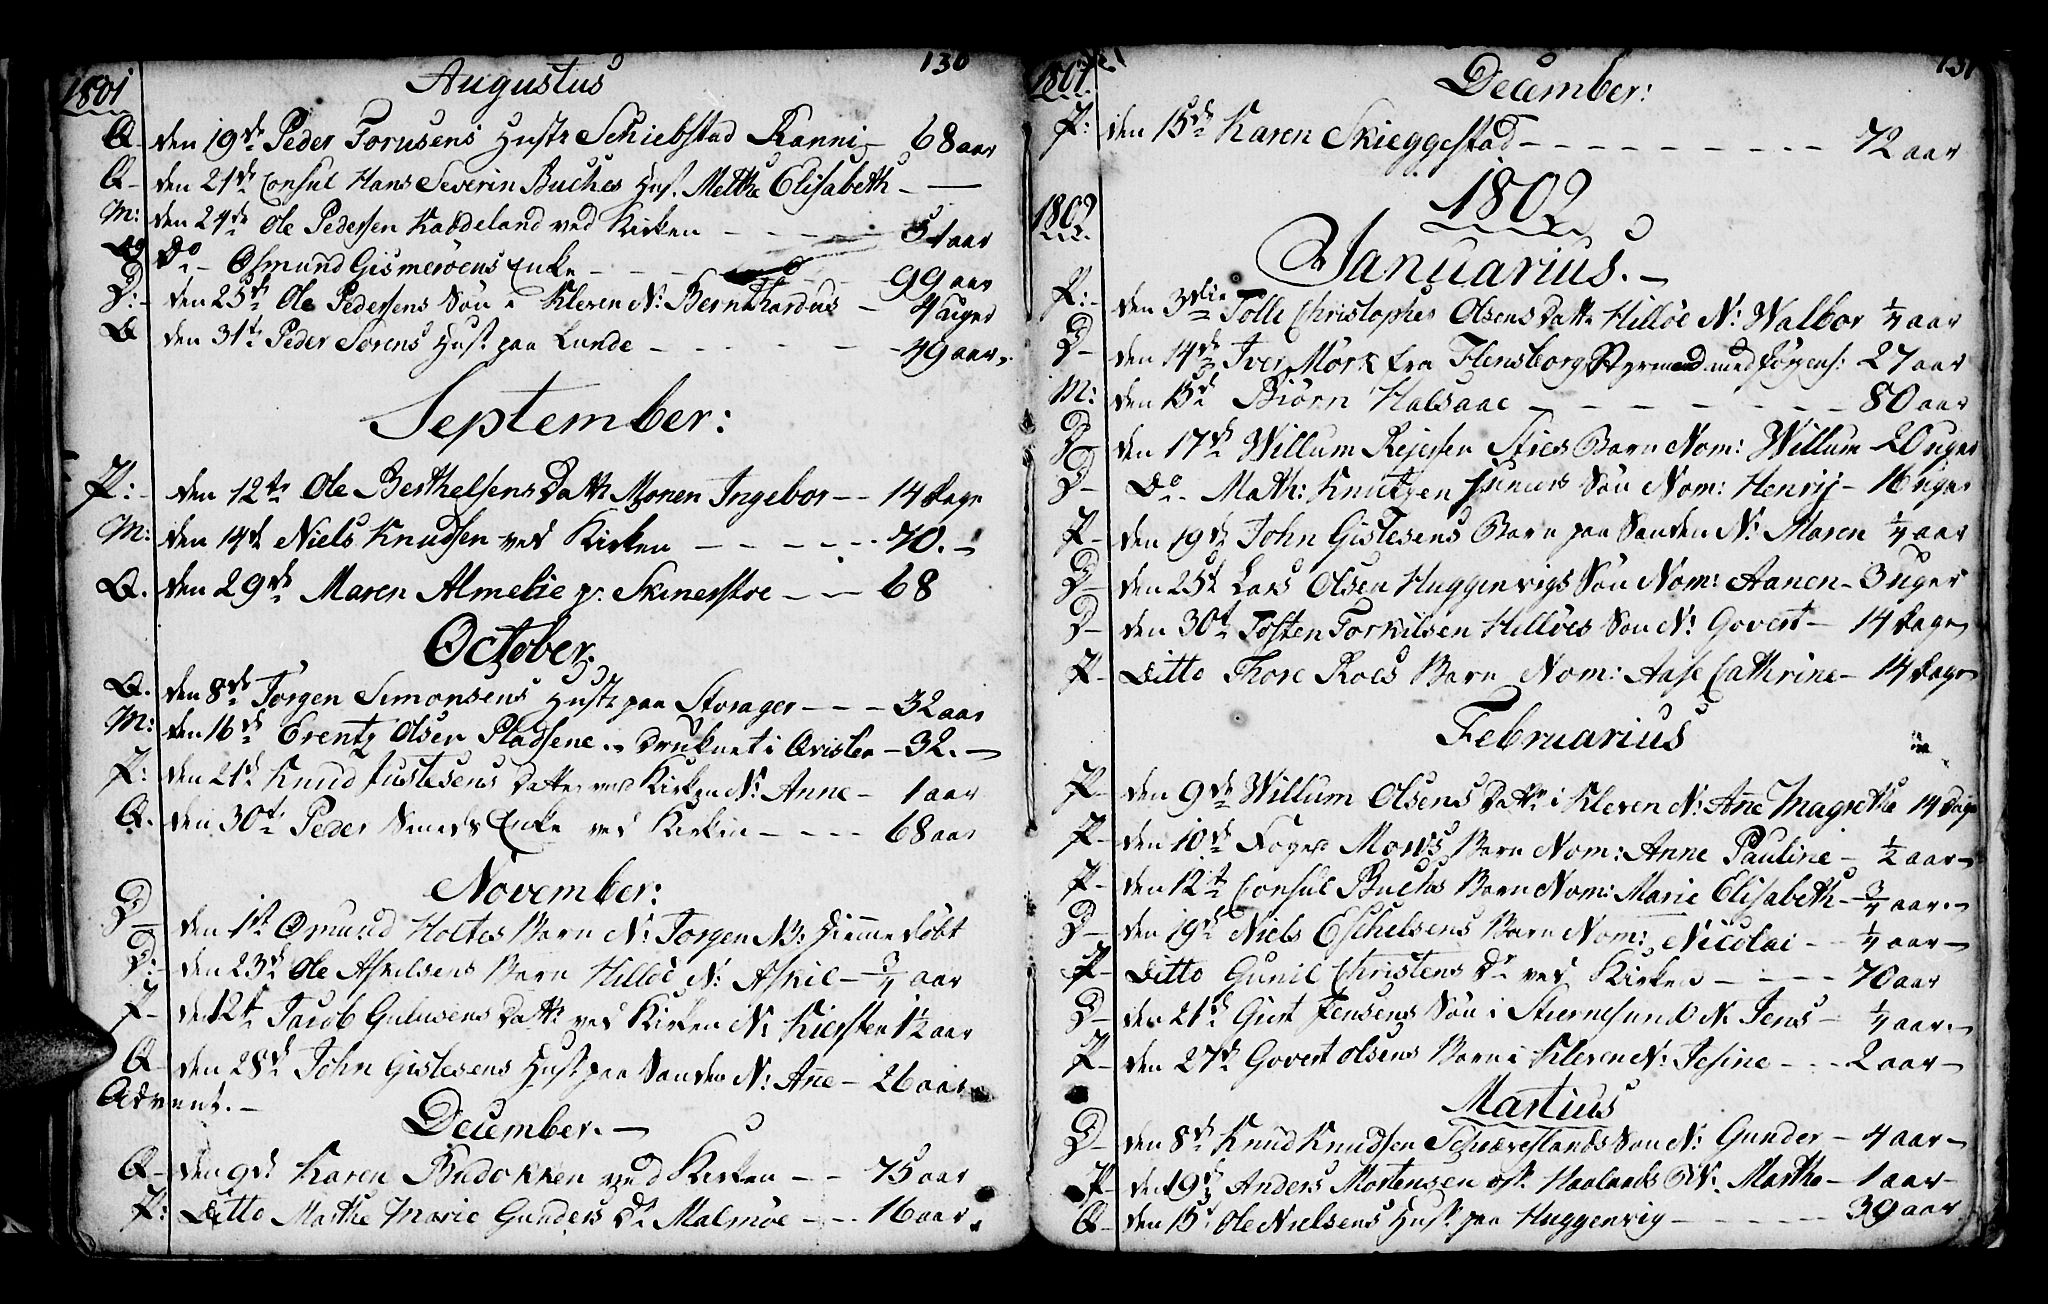 1801
Augustus
130
Q- den 19de Peder Torusens Hust: Schiebstad Ranni - 68 aar
Q- den 21de Consul Hans Severin Buches Hus. Mettha Elisabeth -
M: den 24de Ole Pedersen Kaddeland ved Kirken - 51 aar
Do - Osmund Gismerøens Enke - 99 aar
D:- den 25de Ole Pedersens Søn i Kleven N: Bernhardus - 4 uger
Q den 31te Peder Sørens Hus. paa Lunde - 49 aar.
September:
P:- den 12te Ole Berthelsens Datt: Monen Ingebor - 14 dage
M: den 14de Niels Knudsen ved Kirken - 70.-
Q. den 29de Maren Almelie - 68
October.
Q. den 8de Jørgen Simonsens Hust: paa Storager - 32 aar
M: den 16de Erentz Olsen Pladsene. druknet i - 32.-
P: den 21de Knud Justesens Datter ved Kirken N: Anne - 1 aar
Q. den 30te Peder Smeds Enke ved Kirken - 68 aar
November:
D- den 1ste Omund Holtes Barn N: Jørgen NB: Hjemmedøbt
D:- den 23de Ole Askilsens Barn Hilløe N: Askil - 3/4 aar
P- den 12te Jacob Gulusens Datt: ved Kirken N: Kiersten 1 1/2 aar
Q- den 28de John Gislesens Hus. paa Sanden N: Añe - 26 aar
Advent.-
December.-
Q- den 9de Karen Budokken ved Kirken - 75 aar
P: Ditto Marthe Marie Gunders Dr Malmøe - 16 aar.
1801.
December:
131
P: den 15de Karen Skieggestad - 72 aar
1802
1802
Januarius.-
P:- den 3die Tolle Christopher Olsens Datt: Hilløe N: Walbor 1/4 aar
D- den 14de Iver Mörk fra Flensborg Styrmand med Jørgens: 27 aar
M: den 15de Biörn Halsaae - 80 aar
D- den 17de Willum Rejersen Barn Nom: Willum 20 uger
D- Do- Math: Knutzen Søn Nom: Henrij - 16 uger
P- den 19de John Gislesens Barn paa Sanden N: Maren 1/4 aar
D- den 25de Lars Olsen Huggenvigs Søn Nom: Aanen - 3 uger
D- den 30te Tosten Torkilsen Hillöes Søn N: Govert - 14 dage
P- Ditto Thore Roes Barn Nom: Aase Cathrine - 14 dage
Februarius
P- den 9de Willum Olsens Datt: i Kleven N: Añe Magretha 14 dage
P- den 10de Foged Barn Nom: Anne Pauline - 1/2 aar-
P- den 12te Consul Buchs Barn Nom: Marie Elisabeth - 3/4 aar.-
D- den 19de Niels Eschelsens Barn Nom: Nicolai - 1/4 aar-
P- Ditto Gunil Christens Dr ved Kirken - 70 aar
D- den 21de Giert Jensens Søn i Stiernesund N: Jens - 1/4 aar.-
P- den 27de Govert Olsens Barn i Kleven N: Jesine - 2 aar-
Martius
D- den 8de Knud Knudsen Søn N: Gunder - 4 aar-
P- den 19de Anders Mortensen N: Marthe - 1 aar-
Q- den 15de Ole Nielsens Hus. paa Huggenvig - 39 aar